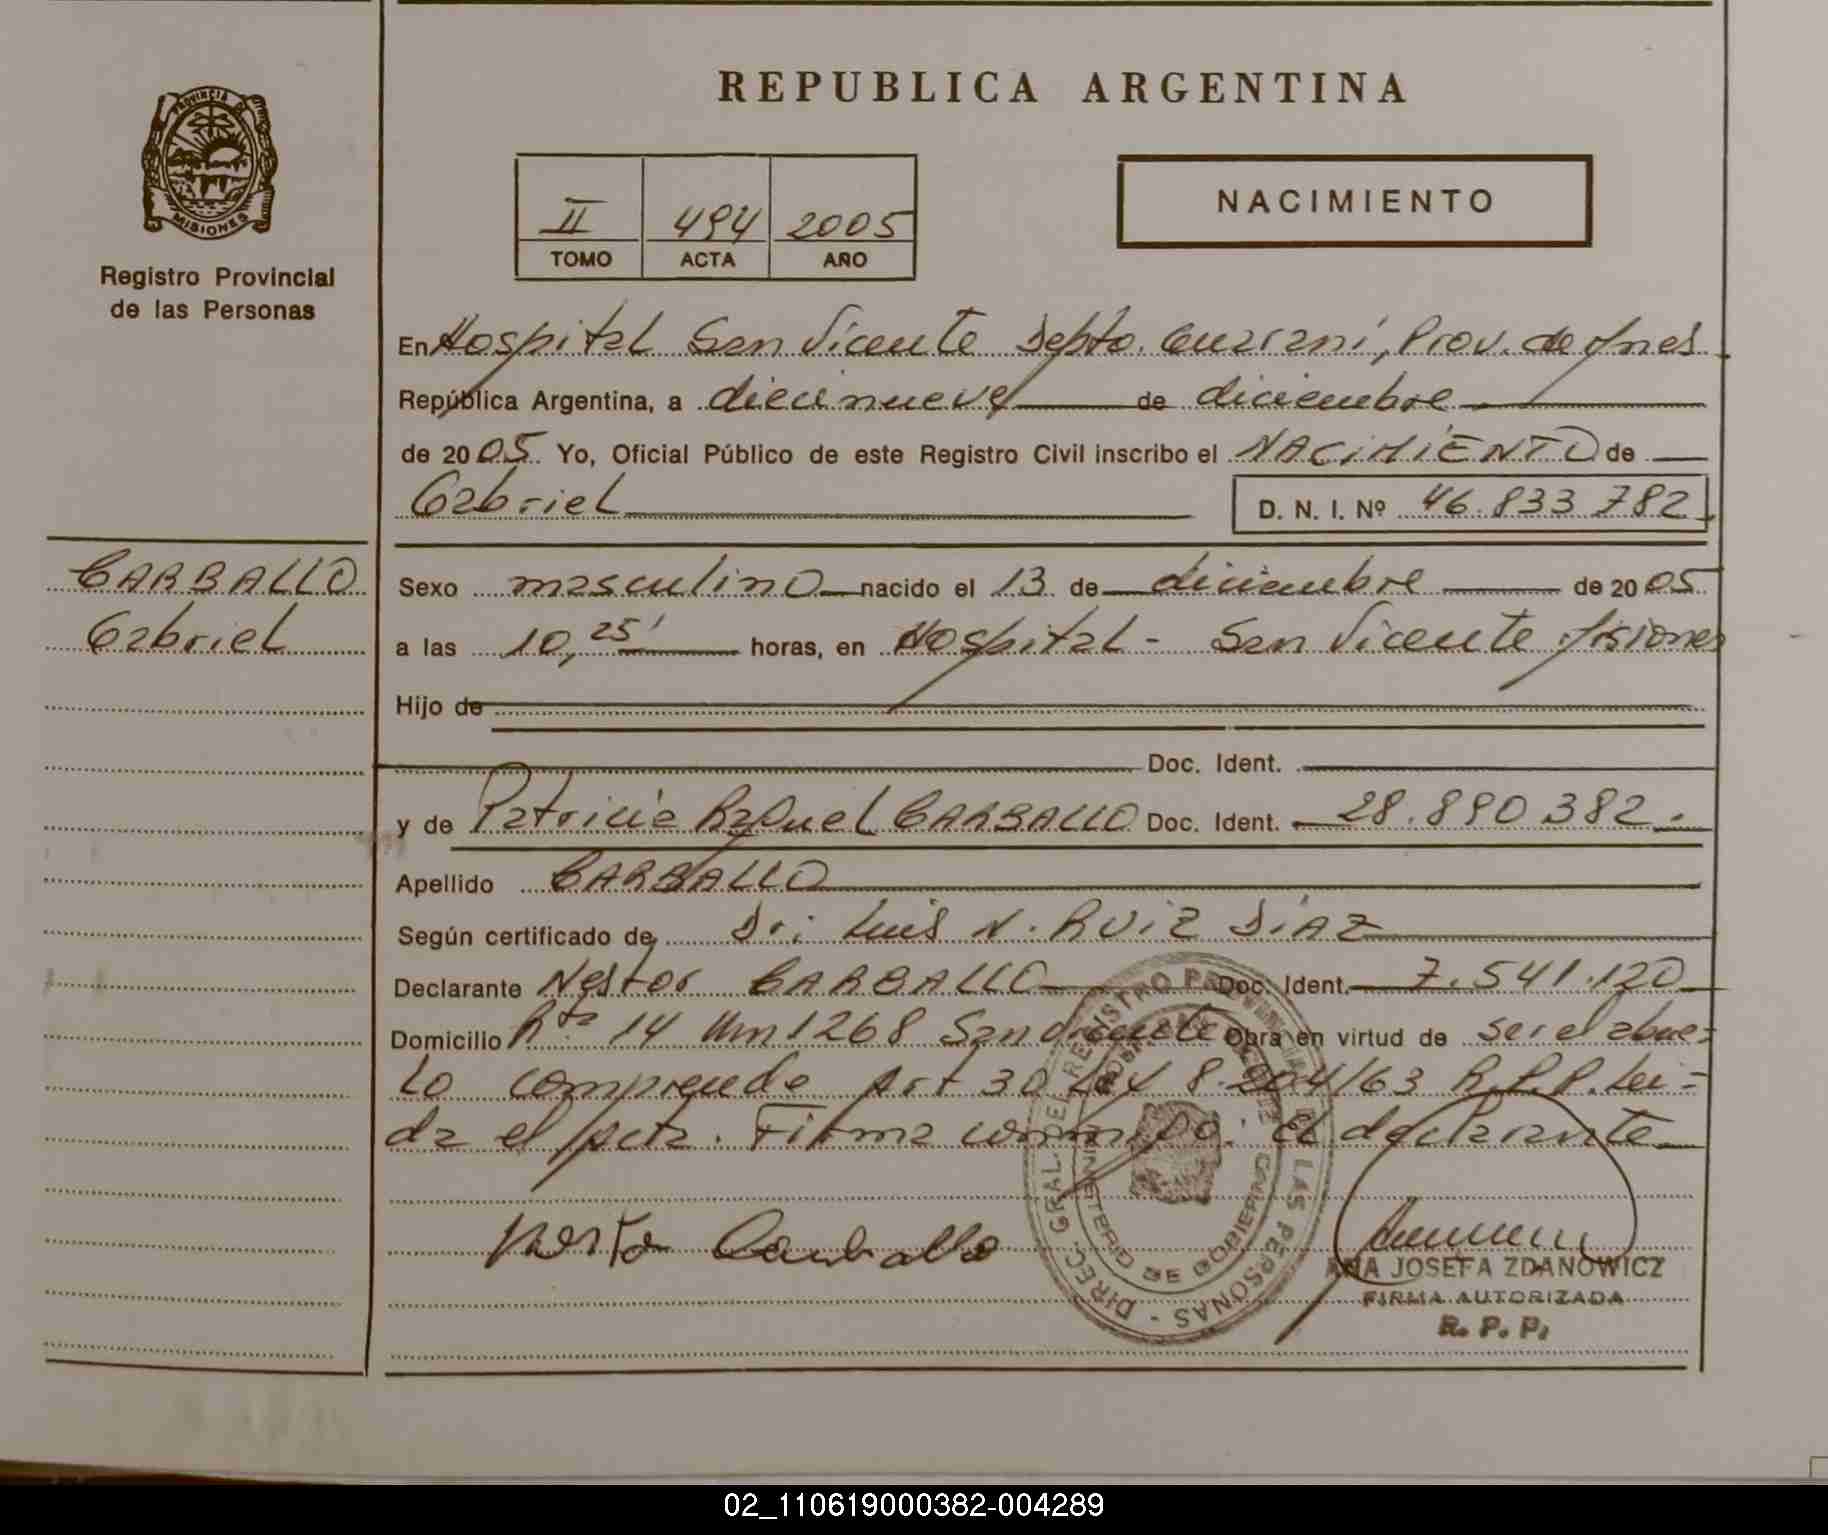 REPUBLICA ARGENTINA
PROVINCIA DE
MISIONES
Registro Provincial
de las Personas
II 494 2005
TOMO ACTA AÑO
NACIMIENTO
En Hospital San Vicente Depto. Guaraní, Prov. de Mnes
República Argentina, a diecinueve de diciembre
de 2005. Yo, Oficial Público de este Registro Civil inscribo el NACIMIENTO de
Gabriel D. N. I. Nº 46.833.782
CARBALLO
Gabriel
Sexo masculino nacido el 13 de diciembre de 2005
a las 10,25' horas, en Hospital - San Vicente Misiones
Hijo de
Doc. Ident.
y de Patricia Raquel CARBALLO Doc. Ident. 28.890.382.
Apellido CARBALLO
Según certificado de Dr: Luis N. RUIZ DIAZ
Declarante Nestor CARBALLO Doc. Ident. 7.541.120
Domicilio Rta 14 Km 1268 San Vicente Obra en virtud de ser el abue=
lo comprende Art 30 Ley 8.204/63 R.P.P. Lei=
da el Acta. Firma conmigo: El declarante
DIREC. GRAL. DEL REGISTRO PROVINCIAL DE LAS PERSONAS -
MINISTERIO DE GOBIERNO
Nestor Carballo
ANA JOSEFA ZDANOWICZ
FIRMA AUTORIZADA
R. P. P.
02_110619000382-004289